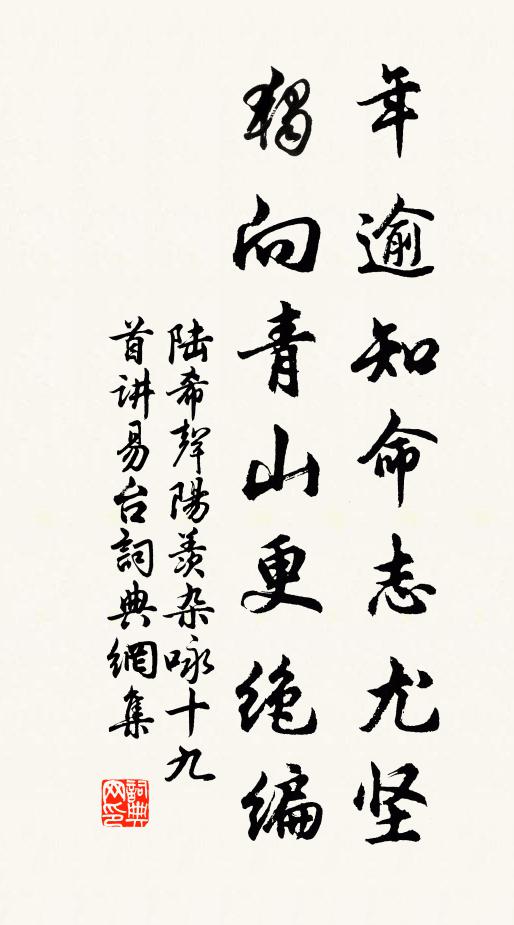 年逾知命志尤坚
獨向青山更绝编
陆希聲陽羨杂咏十九
首讲易台詞典網集
詞典网印